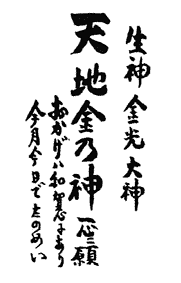 生神金光大神
天地金乃神一心ニ願
おかげハ和賀心にあり
今月今日でたのめい